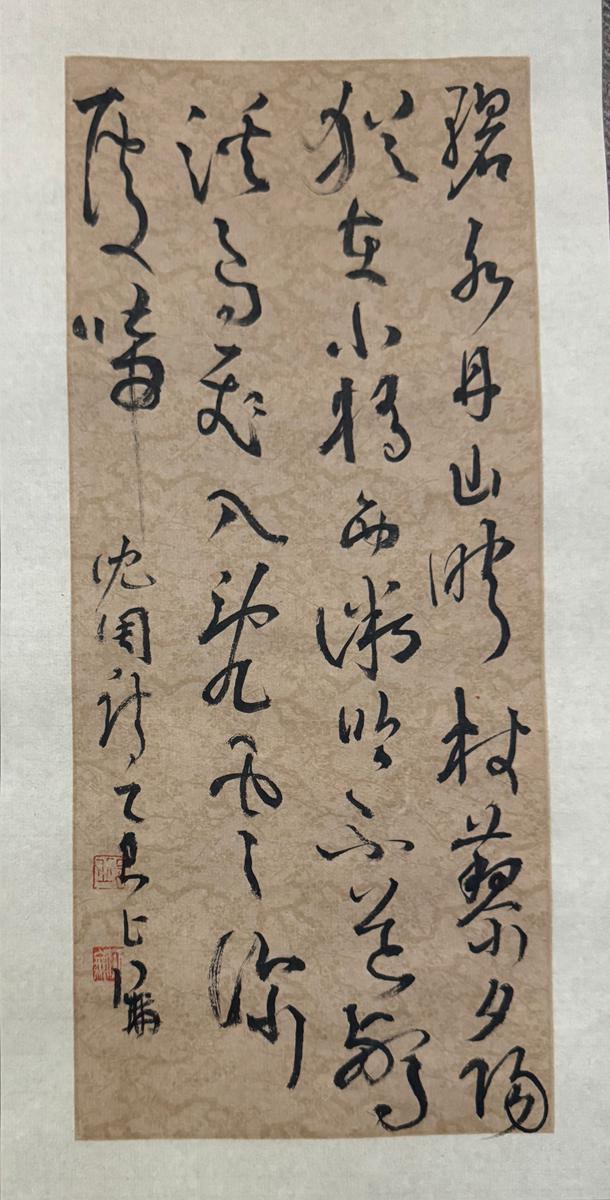 碧水丹山映杖藜夕陽
猶在小橋西微吟不道驚
溪鳥飛入亂雲深
處啼
沈周詩乙